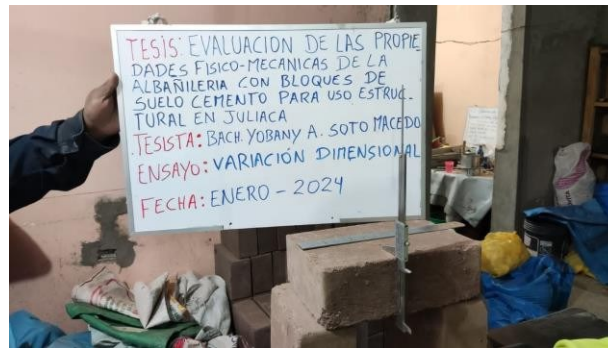 TESIS: EVALUACION DE LAS PROPIE
DADES FISICO-MECANICAS DE LA
ALBAÑILERIA CON BLOQUES DE
SUELO CEMENTO PARA USO ESTRUC-
TURAL EN JULIACA
TESISTA: BACH. YOBANY A. SOTO MACEDO
ENSAYO: VARIACIÓN DIMENSIONAL
FECHA: ENERO - 2024